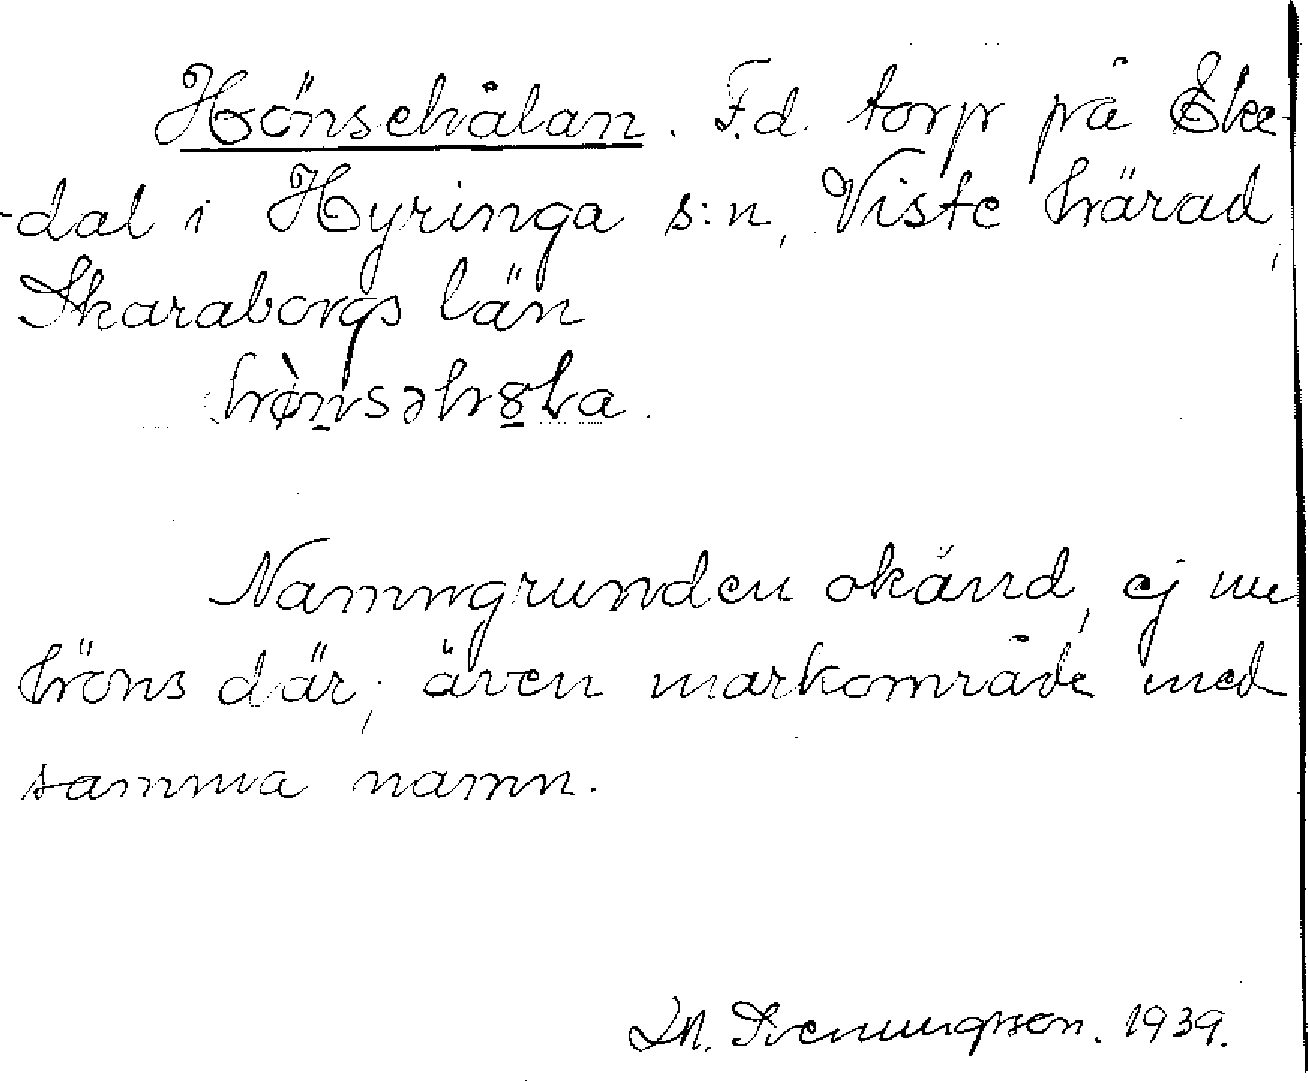 Hönsehålan. F.d. torp på Eke-
-dal i Hyringa s:n, Viste härad,
Skaraborgs län
Namngrunden okänd, ej
höns där; även markområde med
samma namn.
Svenungsson. 1939.